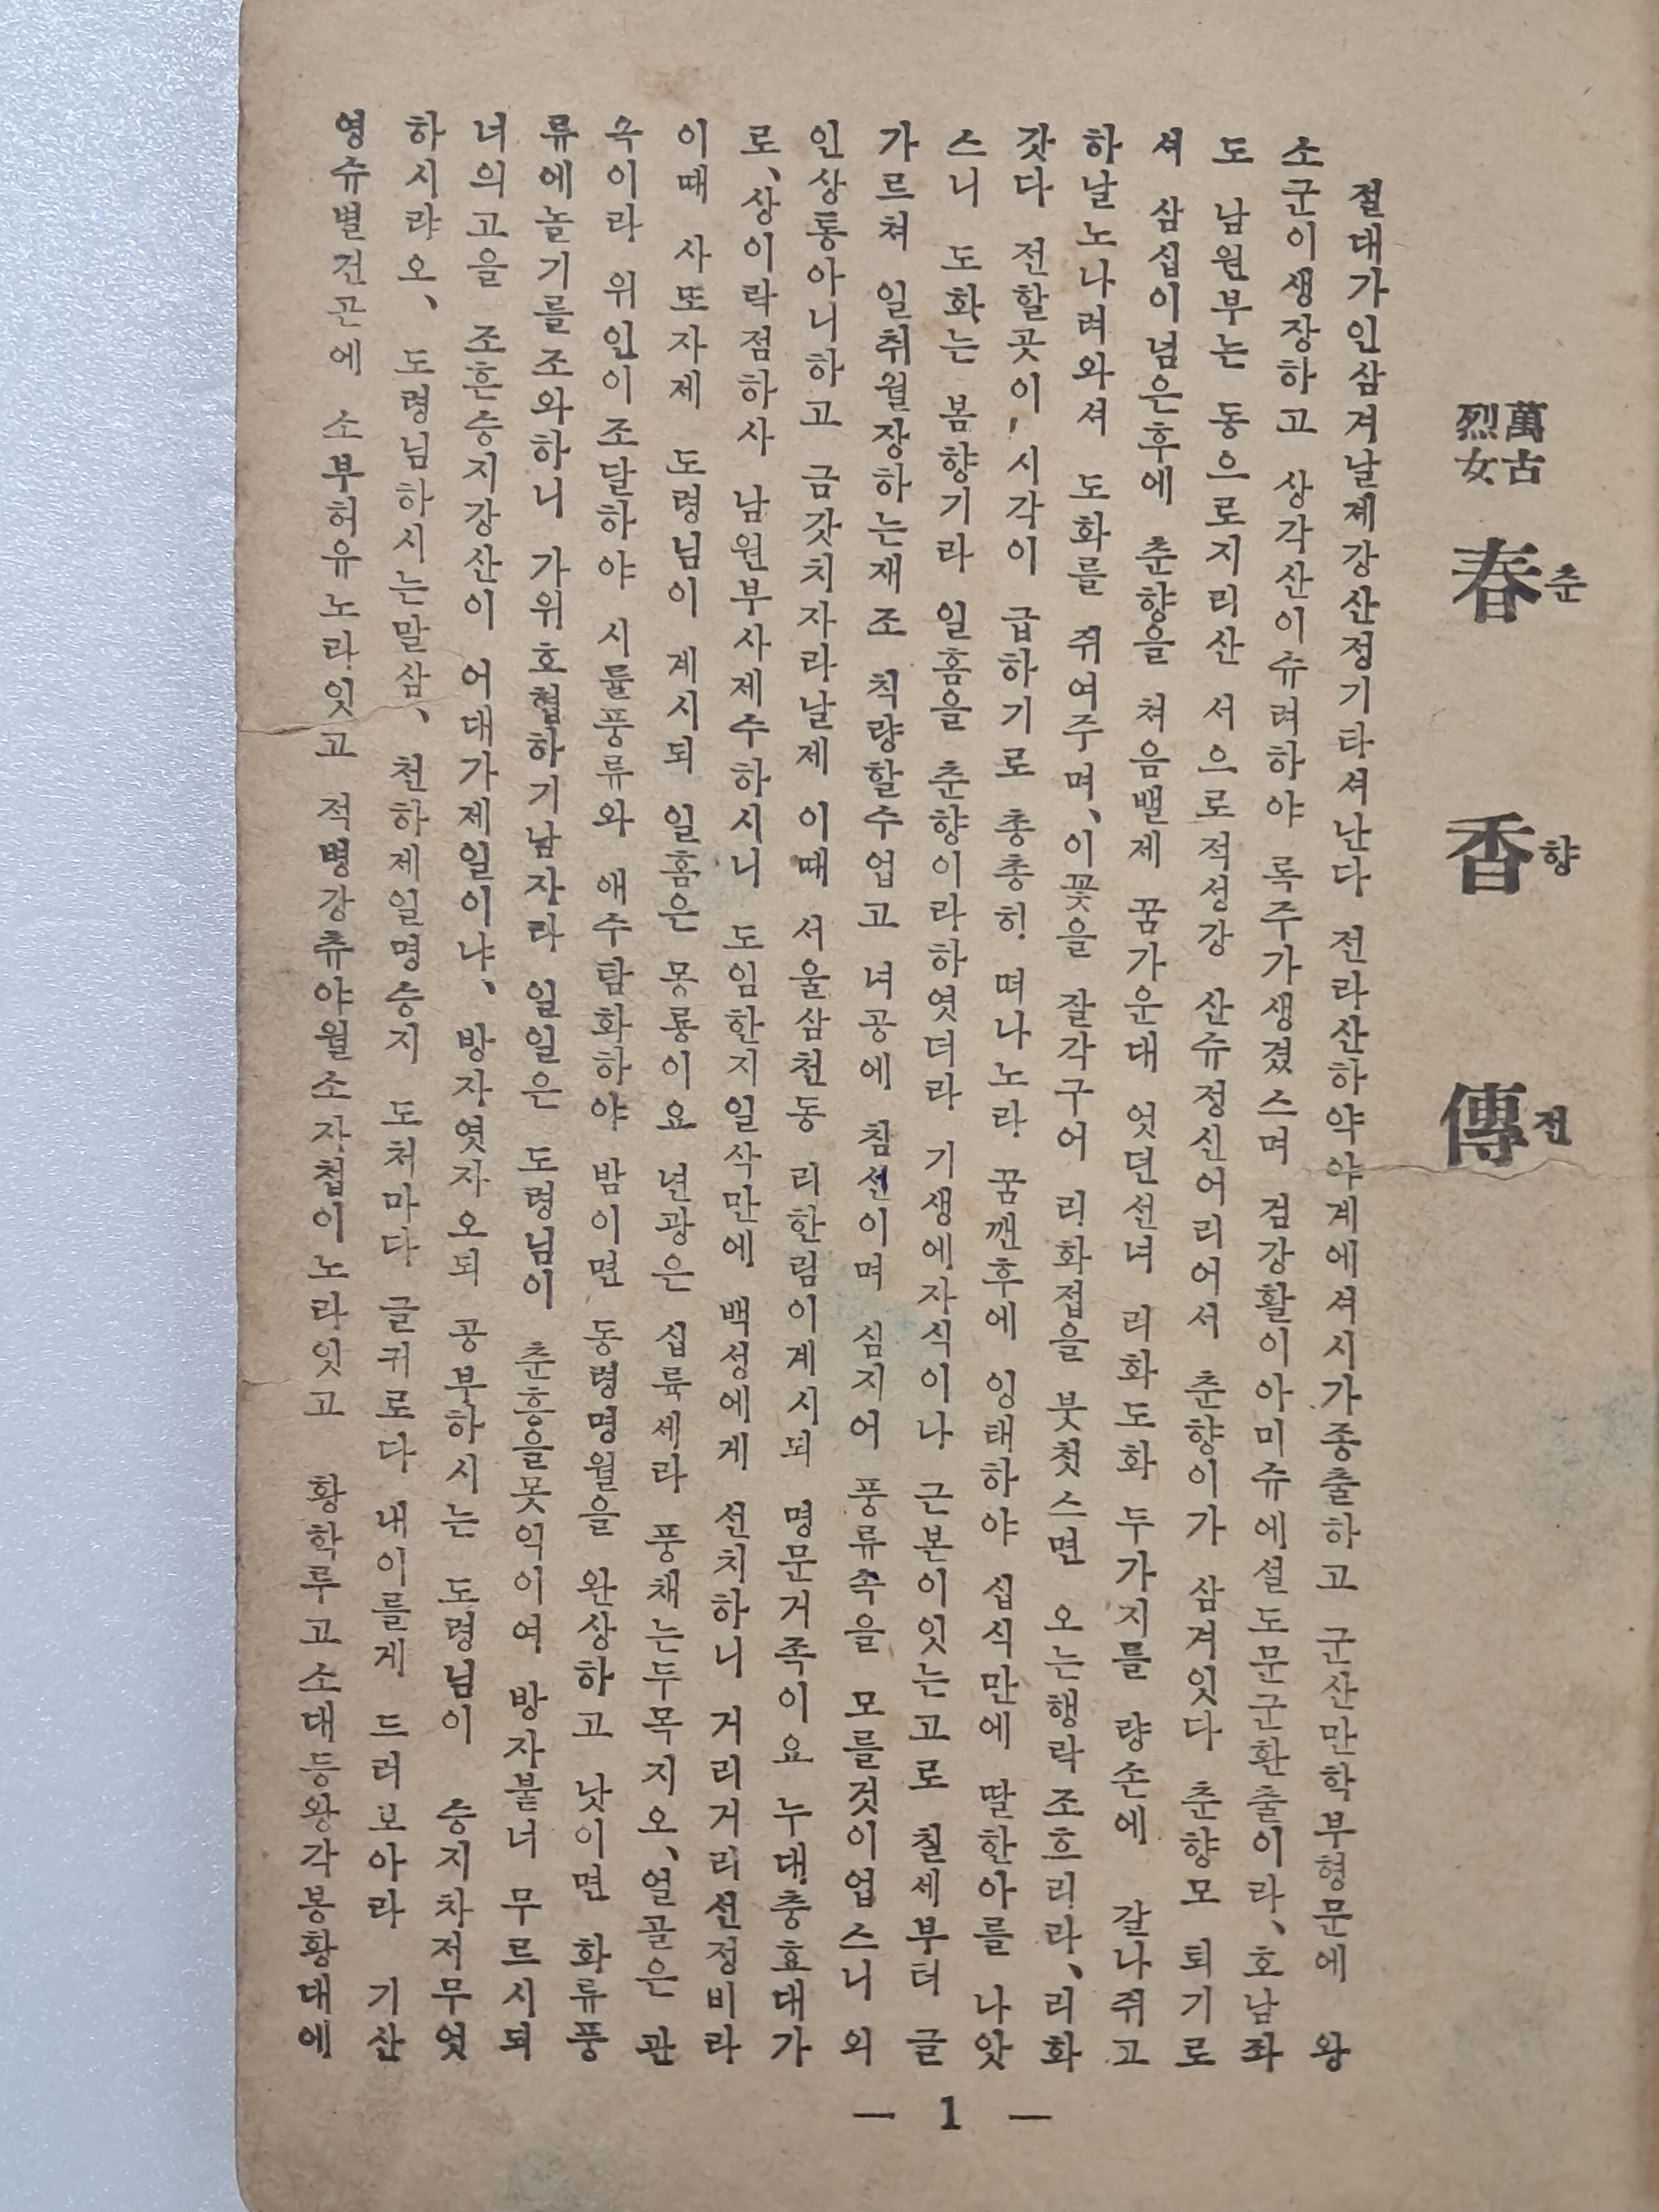 萬古
烈女
春香傳
춘향전
절대가인삼겨날졔강산정기타셔난다 전라산하약야계에셔시가종출하고 군산만학부형문에 왕
소군이생장하고 상각산이슈려하야 록주가생겼스며 검강활이아미슈에설도문군환출이라、호남좌
도 남원부는 동으로지리산 서으로적성강 산슈정신어리어서 춘향이가 삼겨잇다 춘향모 퇴기로
셔 삼십이넘은후에 춘향을 쳐음밸제 꿈가운대 엇던선녀 리화도화 두가지를 량손에 갈나쥐고
하날노나려와셔 도화를 쥐여주며、이꽃을 잘각구어 리화접을 붓첫스면 오는행락조흐리라、리화
갓다 전할곳이, 시각이 급하기로 총총히 떠나노라 꿈깬후에 잉태하야 십식만에 딸한아를 나앗
스니 도화는 봄향기라 일홈을 춘향이라하엿더라 기생에자식이나 근본이잇는고로 칠세부터 글
가르쳐 일취월장하는재조 칙량할수업고 녀공에 침선이며 심지어 풍류속을 모를것이업스니 외
인상통아니하고 금갓치자라날제 이때 서울삼천동 리한림이계시되 명문거족이요 누대충효대가
로、상이락점하사 남원부사제수하시니 도임한지일삭만에 백성에게 선치하니 거리거리선정비라
이때 사또자제 도령님이 계시되 일홈은 몽룡이요 년광은 십륙세라 풍채는두목지오、얼골은 관
옥이라 위인이조달하야 시률풍류와 애수탐화하야 밤이면 동령명월을 완상하고 낫이면 화류풍
류에놀기를조와하니 가위호협하기남자라 일일은 도령님이 춘흥을못익이여 방자불너 무르시되
너의고을 조흔승지강산이 어대가제일이냐、방자엿자오되 공부하시는 도령님이 승지차저무엇
하시랴오、도령님하시는말삼、천하제일명승지 도처마다 글귀로다 내이를게 드러보아라 기산
영슈별건곤에 소부허유노라잇고 적벽강츄야월소자첩이노라잇고 황학루고소대등왕각봉황대에
— 1 —